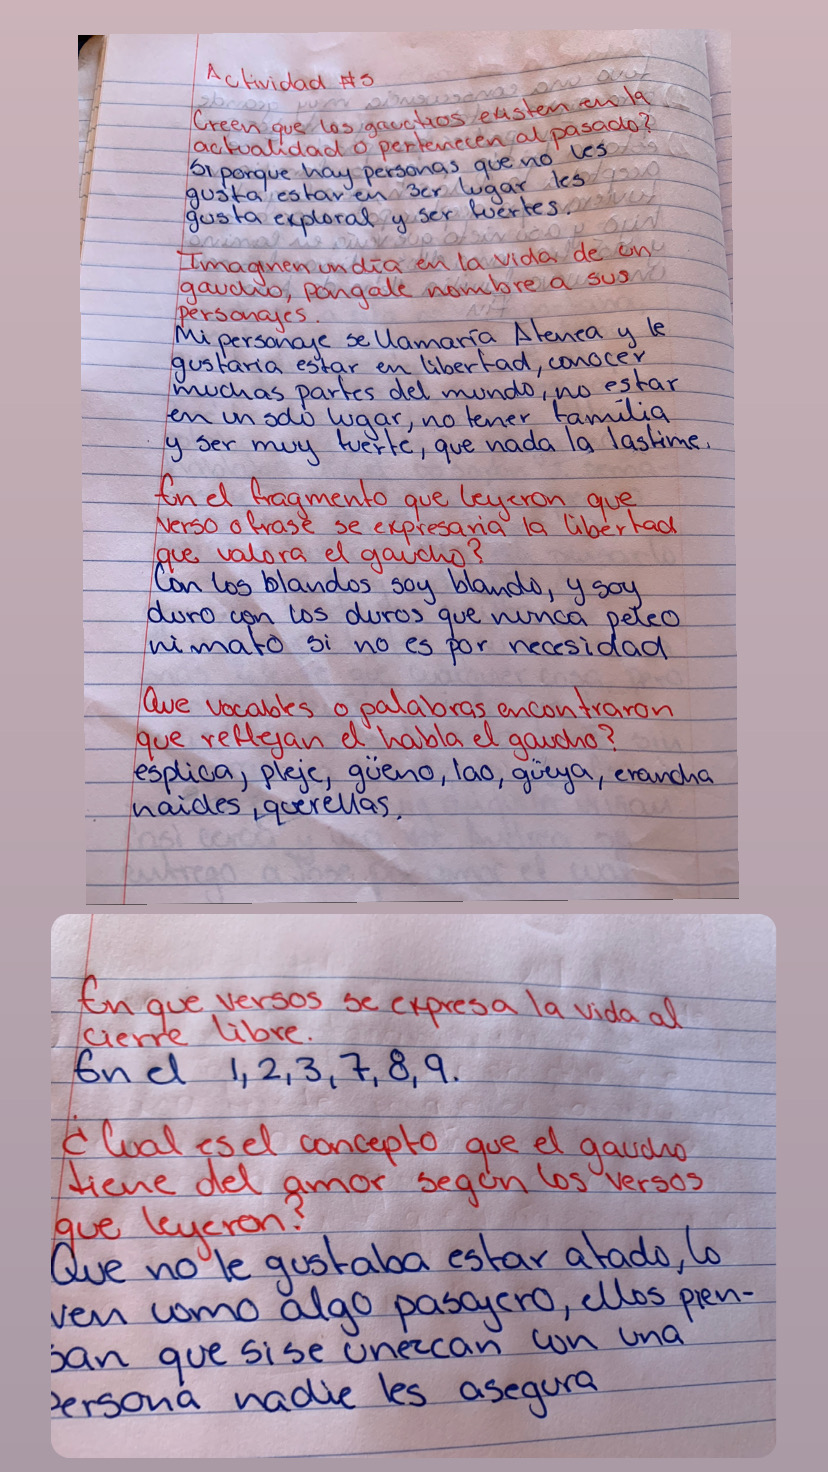 Actividad #3
Creen que los gauchos existen en la
actualidad o pertenecen al pasado?
Si porque hay personas que no les
gusta estar en 3er lugar les
gusta exploral y ser fuertes.
Imaginen un día en la vida de un
gaucho, pongale nombre a sus
personajes.
Mi personaje se llamaría Atenea y le
gustaria estar en libertad, conocer
muchas partes del mundo, no estar
en un solo lugar, no tener familia
y ser muy fuerte, que nada la lastime.
En el fragmento que leyeron que
verso o frase se expresaria la libertad
que valora el gaucho?
Con los blandos soy blando, y soy
duro con los duros que nunca peleo
ni mato si no es por necesidad
Que vocables o palabras encontraron
que reflejan el habla el gaucho?
esplica, pleje, güeno, lao, güeya, erancha
naides, querellas.
En que versos se expresa la vida al
cierre libre.
En el 1, 2, 3, 7, 8, 9.
¿Cual es el concepto que el gaucho
tiene del amor según los versos
que leyeron?
Que no le gustaba estar atado, lo
ven como algo pasajero, ellos pien-
san que si se unezcan con una
persona nadie les asegura